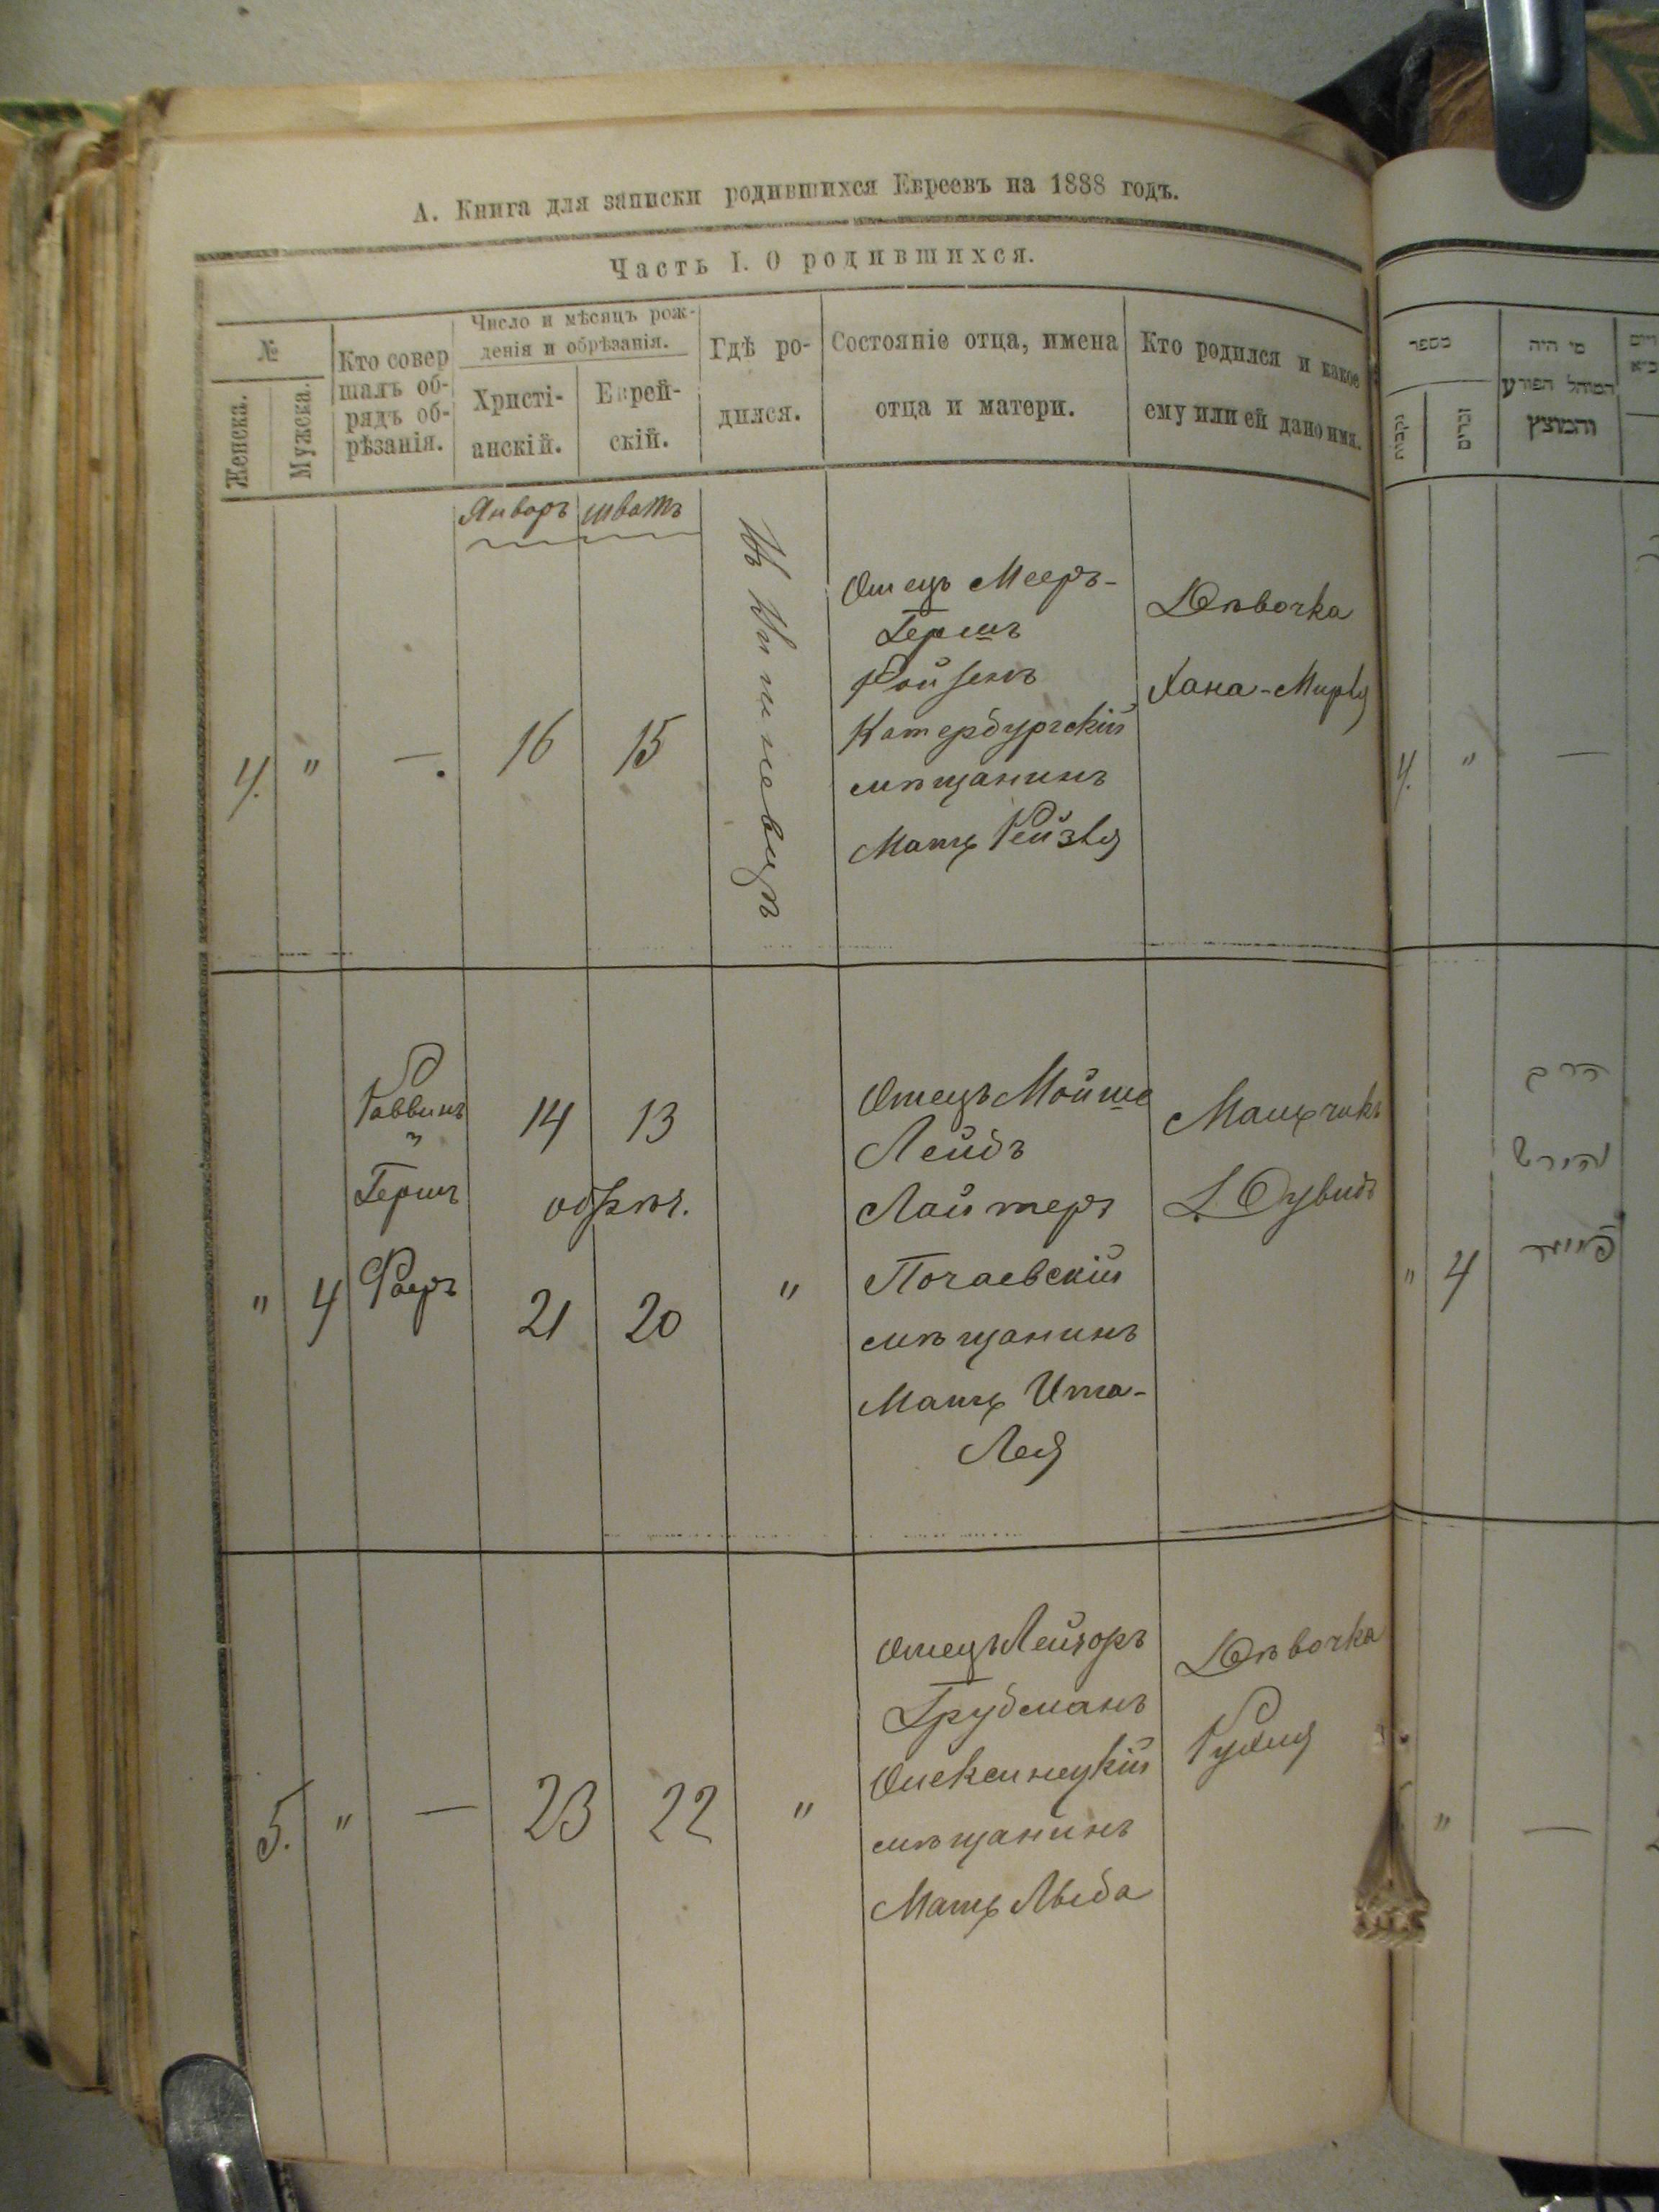 А. Книга для записки родившихся Евреевъ на 1888 годъ.
Часть I. О родившихся.
№
Женска.
Мужска.
Кто совер
шалъ об-
рядъ об-
рѣзанія.
Число и мѣсяцъ рож-
денія и обрѣзанія.
Христі-
анскій.
Еврей-
скій.
Гдѣ ро-
дился.
Состояніе отца, имена
отца и матери.
Кто родился и какое
ему или ей дано имя.
Январь шватъ
4. " — 16 15
Въ
Отецъ Мееръ-
Гершъ
Ройзенъ
Катербургскій
мѣщанинъ
Мать Рейзля
Дѣвочка
Хана-Мирля
" 4
Раввинъ
Гершъ
Фаеръ
14 13
обрѣз.
21 20
"
Отецъ Мойше
Лейбъ
Лайтеръ
Почаевскій
мѣщанинъ
Мать Ита-
Лея
Мальчикъ
Дувидъ
5. " — 23 22 "
Отецъ Лейзоръ
Грубманъ
Олексинецкій
мѣщанинъ
Мать Люба
Дѣвочка
Рухля
מספר
נקבות
זכרים
מי היה
המוהל הפורע
והמוצץ
4. " —
" 4
הרב
והירש
פייער
" —